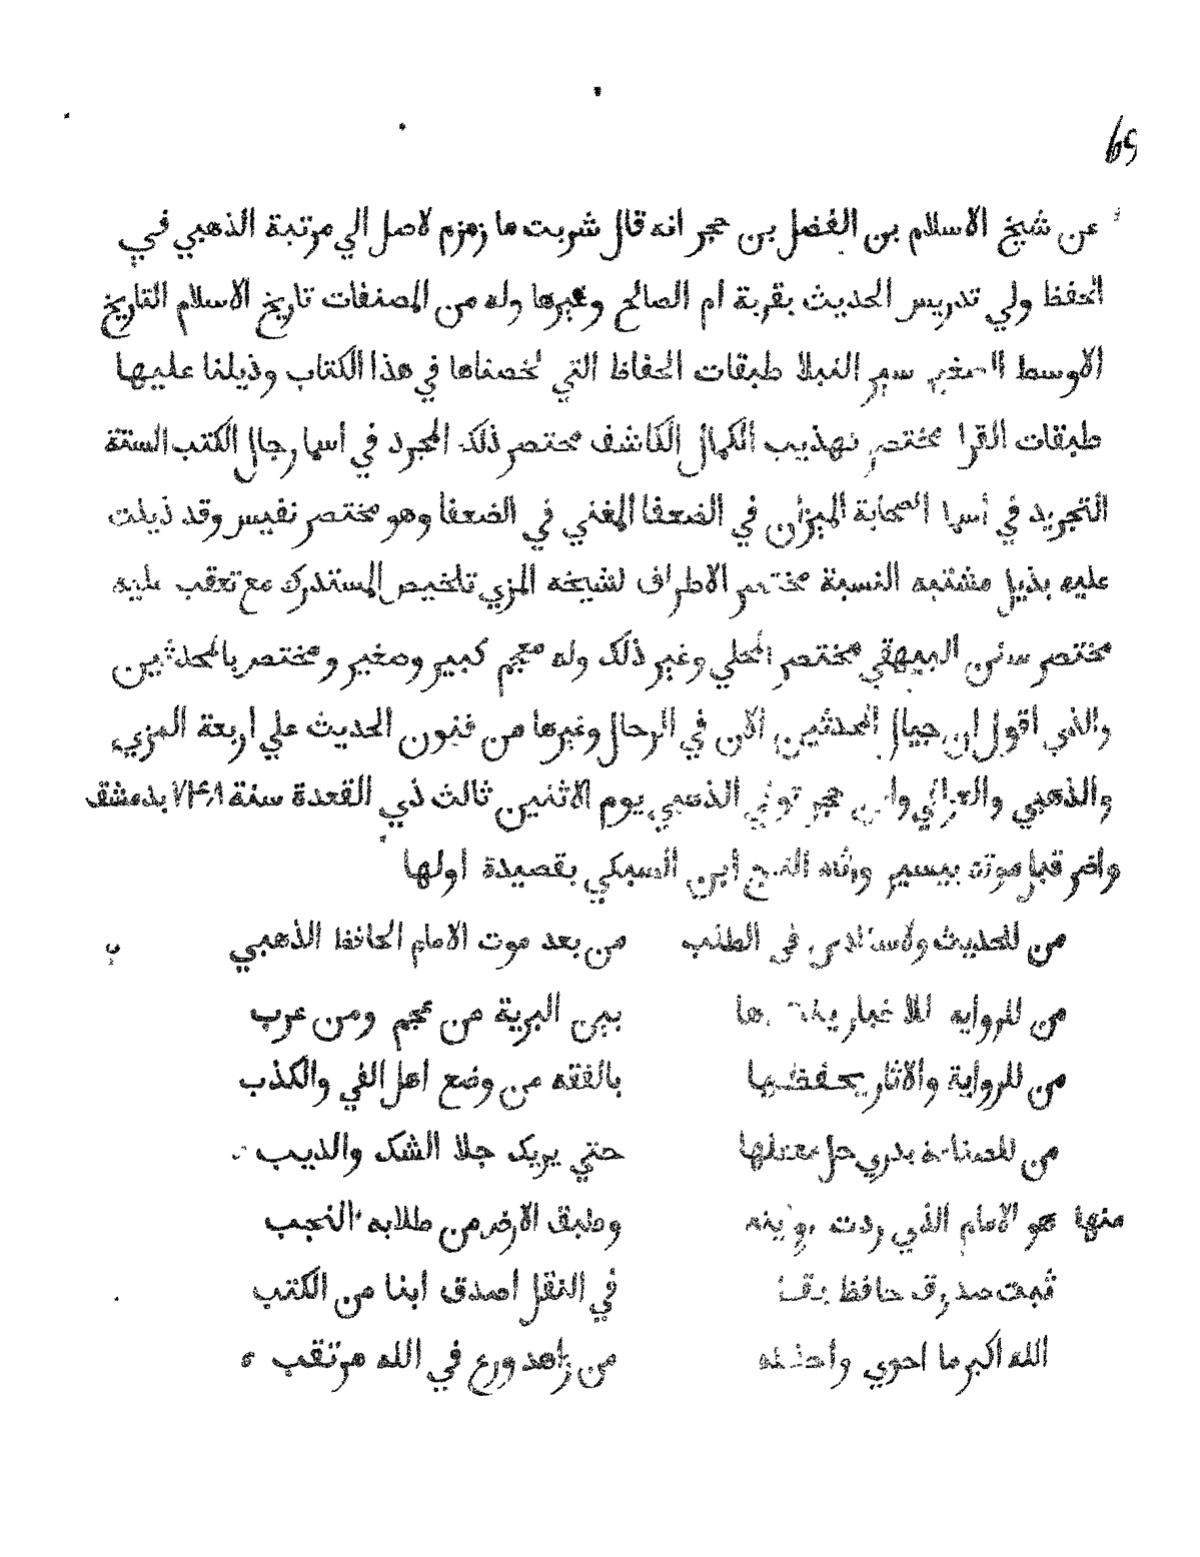 69
عن شيخ الاسلام بن الفضل بن حجر انه قال شربت ما زمزم لاصل الي مرتبة الذهبي في
الحفظ ولي تدريس الحديث بقربة ام الصالح وغيرها وله من المصنفات تاريخ الاسلام التاريخ
الاوسط الصغير سير النبلا طبقات الحفاظ التي لخصناها في هذا الكتاب وذيلنا عليها
طبقات القرا مختصر تهذيب الكمال الكاشف مختصر ذلك المجرد في اسما رجال الكتب الستة
التجريد في أسما الصحابة الميزان في الضعفا المغني في الضعفا وهو مختصر نفيس وقد ذيلت
عليه بذيل مشتبه النسبة مختصر الاطراف لشيخه المزي تلخيص المستدرك مع تعقب عليه
مختصر سنن البيهقي مختصر المحلي وغير ذلك وله معجم كبير وصغير ومختصر بالمحدثين
والذي اقول ان جيال المحدثين الآن في الرجال وغيرها من فنون الحديث علي اربعة المزي
والذهبي والعراقي وابن حجر توفي الذهبي يوم الاثنين ثالث ذي القعدة سنة ٧٤٨ بدمشق
واضر قبل موته بيسير ورثاه التاج ابن السبكي بقصيدة اولها
من للحديث في الطلب من بعد موت الامام الحافظ الذهبي
من للروايه للاخبار بين البرية من عجم ومن عرب
من للرواية والاثار يحفظها بالفقه من وضع اهل الغي والكذب
من للصناعة يدري حل معضلها حتي يريك جلا الشك والذيب
منها هو الامام الذي ردت وطبق الارض من طلابه النجب
ثبت صدوق حافظ في النقل اصدق ابنا من الكتب
الله اكبر ما احوي واحفظه من زاهد ورع في الله مرتقب